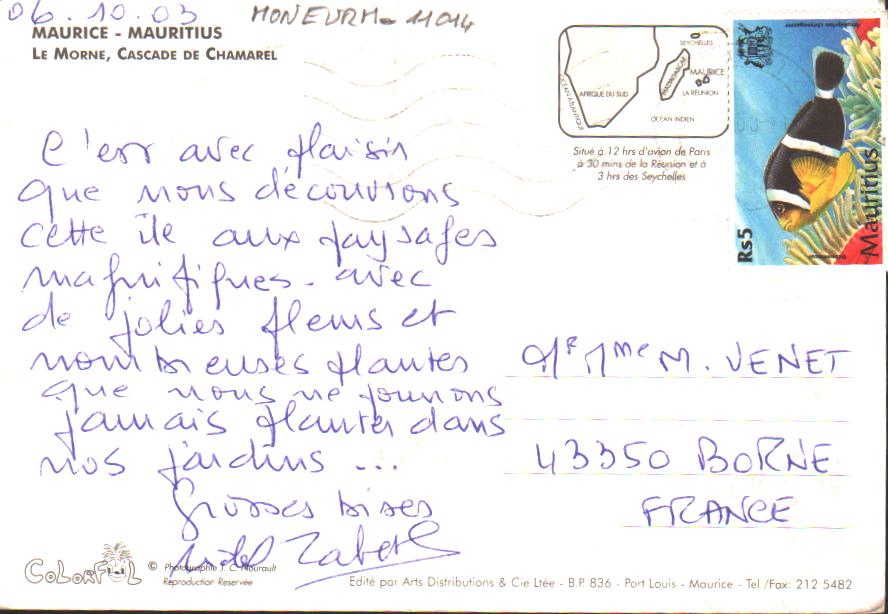 06.10.03
MONEURM-11014
MAURICE - MAURITIUS
LE MORNE, CASCADE DE CHAMAREL
SEYCHELLES
MADAGASCAR
MAURICE
LA RÉUNION
AFRIQUE DU SUD
OCÉAN ATLANTIQUE
OCÉAN INDIEN
Situé à 12 hrs d'avion de Paris
à 30 mins de la Réunion et à
3 hrs des Seychelles
Rs5
Mauritius
C'est avec plaisir
que nous découvrons
cette île aux paysages
magnifiques. avec
de jolies fleurs et
nombreuses plantes
que nous ne pourrons
jamais planter dans
nos jardins ...
Grosses bises
Mr Mme M. VENET
43350 BORNE
FRANCE
COLORFUL
© Photographie J. C. Nourault
Reproduction Réservée
Edité par Arts Distributions & Cie Ltée - B.P. 836 - Port Louis - Maurice - Tel./Fax: 212 5482